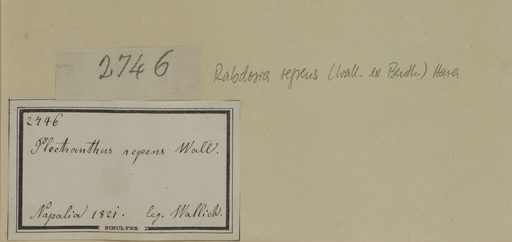 2746
Rabdosia repens (Wall. ex Benth.) Hara
2746
Plectranthus repens Wall.
Napalia 1821. leg. Wallich.
SCHULTES